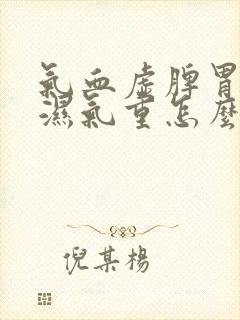 氣血虛脾胃
濕氣重怎麼
倪某楊